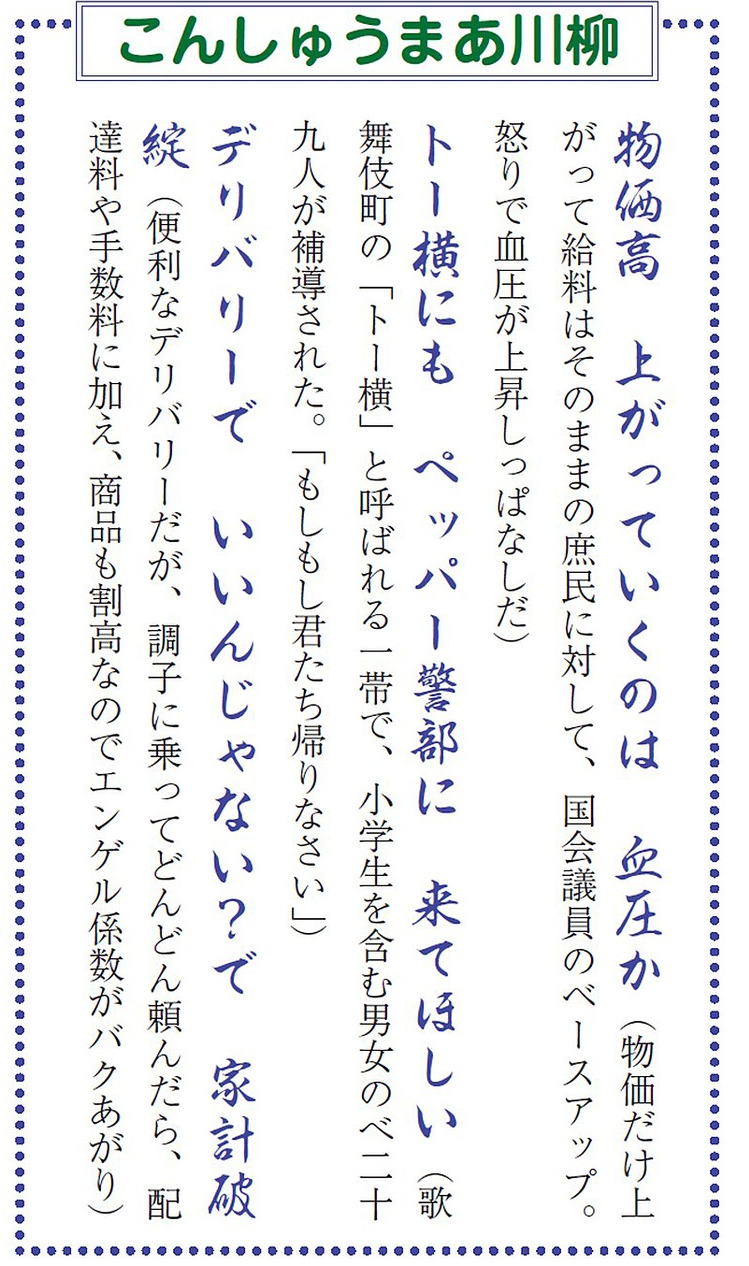 こんしゅうまあ川柳
物価高　上がっていくのは　血圧か（物価だけ上
がって給料はそのままの庶民に対して、国会議員のベースアップ。
怒りで血圧が上昇しっぱなしだ）
トー横にも　ペッパー警部に　来てほしい（歌
舞伎町の「トー横」と呼ばれる一帯で、小学生を含む男女のべ二十
九人が補導された。「もしもし君たち帰りなさい」）
デリバリーで　いいんじゃない？で　家計破
綻（便利なデリバリーだが、調子に乗ってどんどん頼んだら、配
達料や手数料に加え、商品も割高なのでエンゲル係数がバクあがり）